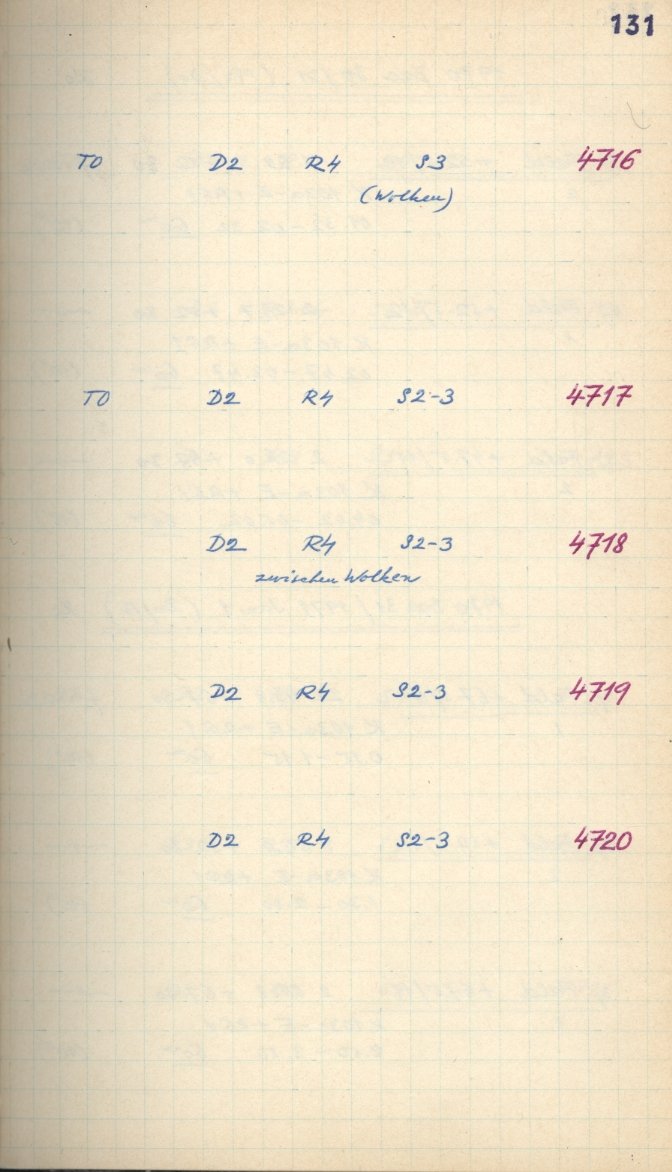 131
TO D2 R4 S3 4716
(Wolken)
TO D2 R4 S2-3 4717
D2 R4 S2-3 4718
zwischen Wolken
D2 R4 S2-3 4719
D2 R4 S2-3 4720